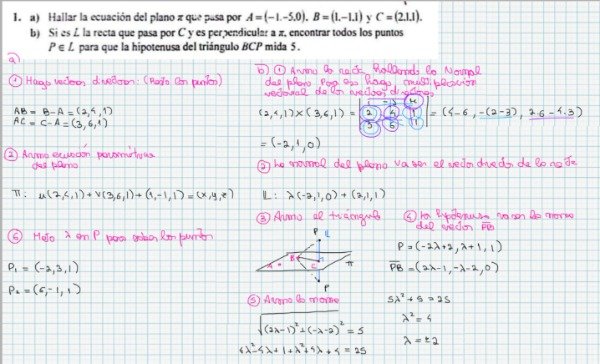 1. a) Hallar la ecuación del plano π que pasa por A = (-1,-5,0), B = (1,-1,1) y C = (2,1,1).
b) Si es L la recta que pasa por C y es perpendicular a π, encontrar todos los puntos
P ∈ L para que la hipotenusa del triángulo BCP mida 5.
a)
① Hago vectores directores: (Resto los puntos)
AB = B-A = (2,4,1)
AC = C-A = (3,6,1)
② Armo ecuación paramétrica
del plano
π: u(2,4,1)+v(3,6,1)+(1,-1,1) = (x,y,z)
⑥ Meto λ en P para los puntos
P₁ = (-2,3,1)
P₂ = (6,-1,1)
b) ① Armo la recta hallando la Normal
del plano. Por eso hago multiplicación
vectorial de los vectores directores
(2,4,1)×(3,6,1) = | 2 4 1 3 6 1 | = (4-6, -(2-3), 2.6-4.3)
= (-2,1,0)
② La normal del plano va ser el vector director de la recta
L: λ(-2,1,0) + (2,1,1)
③ Armo el triángulo
P
L
A
B
C
π
P
④ La hipotenusa va ser la norma
del vector PB
P = (-2λ+2, λ+1, 1)
PB = (2λ-1, -λ-2, 0)
⑤ Armo la norma
√(2λ-1)²+(-λ-2)² = 5
4λ²-4λ+1+λ²+4λ+4 = 25
5λ²+5 = 25
λ² = 4
λ = ±2